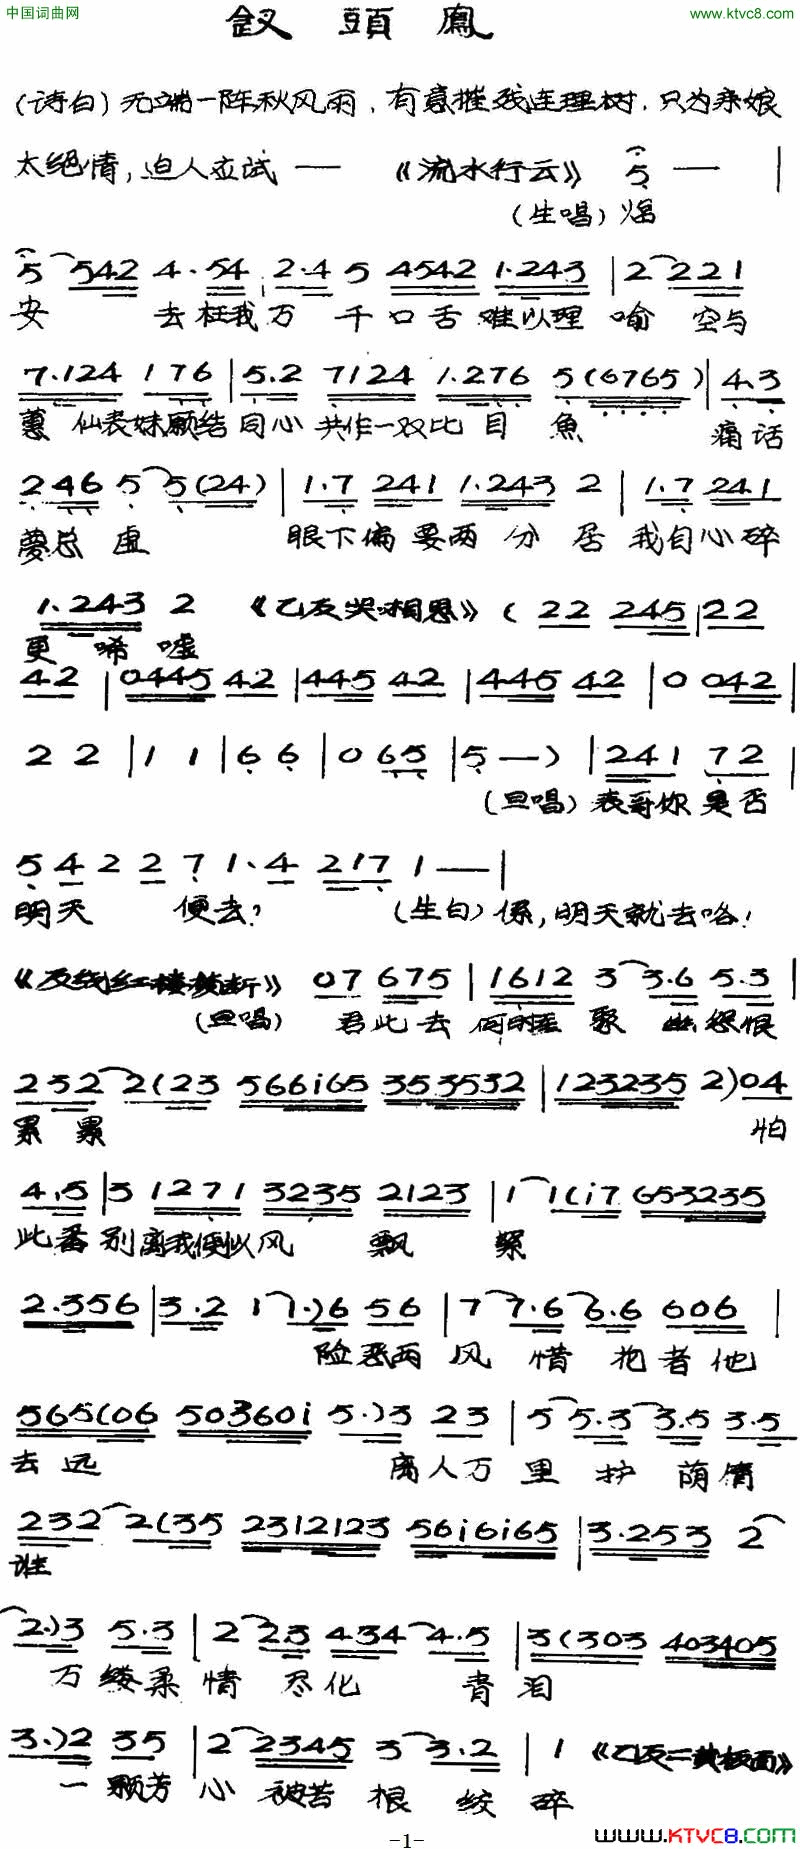 中国词曲网
www.ktvc8.com
釵頭鳳
(诗白)无端一阵秋风雨，有意摧残连理树．只为亲娘
太绝情，迫人应试 — 《流水行云》 5 — |
(生唱)
5 542 4·54 2·4 5 4542 1·243 | 2 221
安 去枉我万 千口舌难以理喻 空与
7·124 176 | 5·2 7124 1·276 5(6765) | 4·3
蕙仙表妹愿结同心 共作一双比目魚 痛话
246 5 5(24) | 1·7 241 1·243 2 | 1·7 241
夢总虚 眼下偏要两分居 我自心碎
1·243 2 《乙反哭相思》 (22 245 | 22
更唏嘘
42 | 0445 42 | 445 42 | 445 42 | 0 042 |
2 2 | 1 1 | 6 6 | 0 65 | 5 —) | 241 72 |
(旦唱)表哥你是否
5 4 2 2 7 1·4 217 1 — |
明天 便去？ (生白)係，明天就去咯！
《反线红楼梦断》 07 675 | 1612 3 3·6 5·3 |
(旦唱) 君此去何时 聚 怨恨
232 2(23 566i65 353532 | 123235 2)04
累累 怕
4·5 | 3 1271 3235 2123 | 1 1(i7 653235
此番别离我便似风 飘 絮
2·356 | 3·2 1 1·)6 56 | 7 7·6 6·6 606 |
险恶两风 惜 他
565(06 50360i 5·)3 23 | 5 5·3 3·5 3·5
去远 离人万里护荫
232 2(35 2312123 56i6i65 | 3·253 2
谁
2·)3 5·3 | 2 2·3 434 4·5 | 3(303 403405
万缕柔情 尽化 泪
3·)2 35 | 2 2345 3 3·2 | 1 《乙反二黄板面》
一颗芳心 被苦恨 绞碎
-1-
www.KTVC8.com